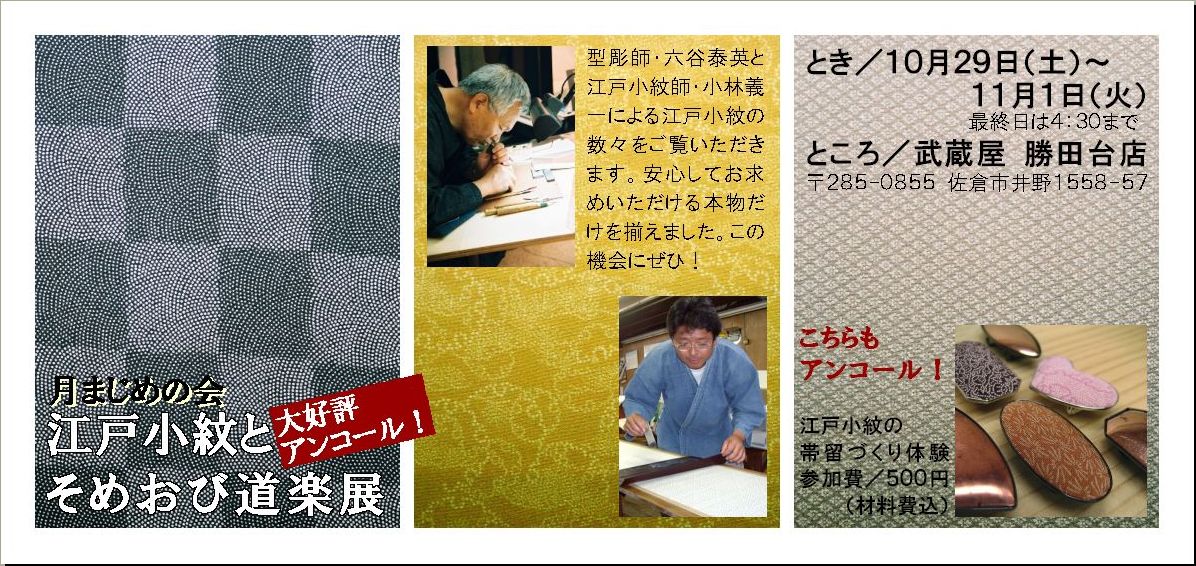 月まじめの会
江戸小紋と
大好評
アンコール！
そめおび道楽展
型彫師・六谷泰英と
江戸小紋師・小林義
一による江戸小紋の
数々をご覧いただき
ます。安心してお求
めいただける本物だ
けを揃えました。この
機会にぜひ！
とき／10月29日（土）～
11月1日（火）
最終日は4：30まで
ところ／武蔵屋 勝田台店
〒285-0855 佐倉市井野1558-57
こちらも
アンコール！
江戸小紋の
帯留づくり体験
参加費／500円
（材料費込）